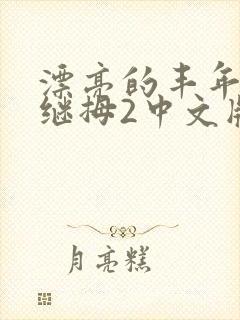 漂亮的丰年
继拇2中文版
月亮糕